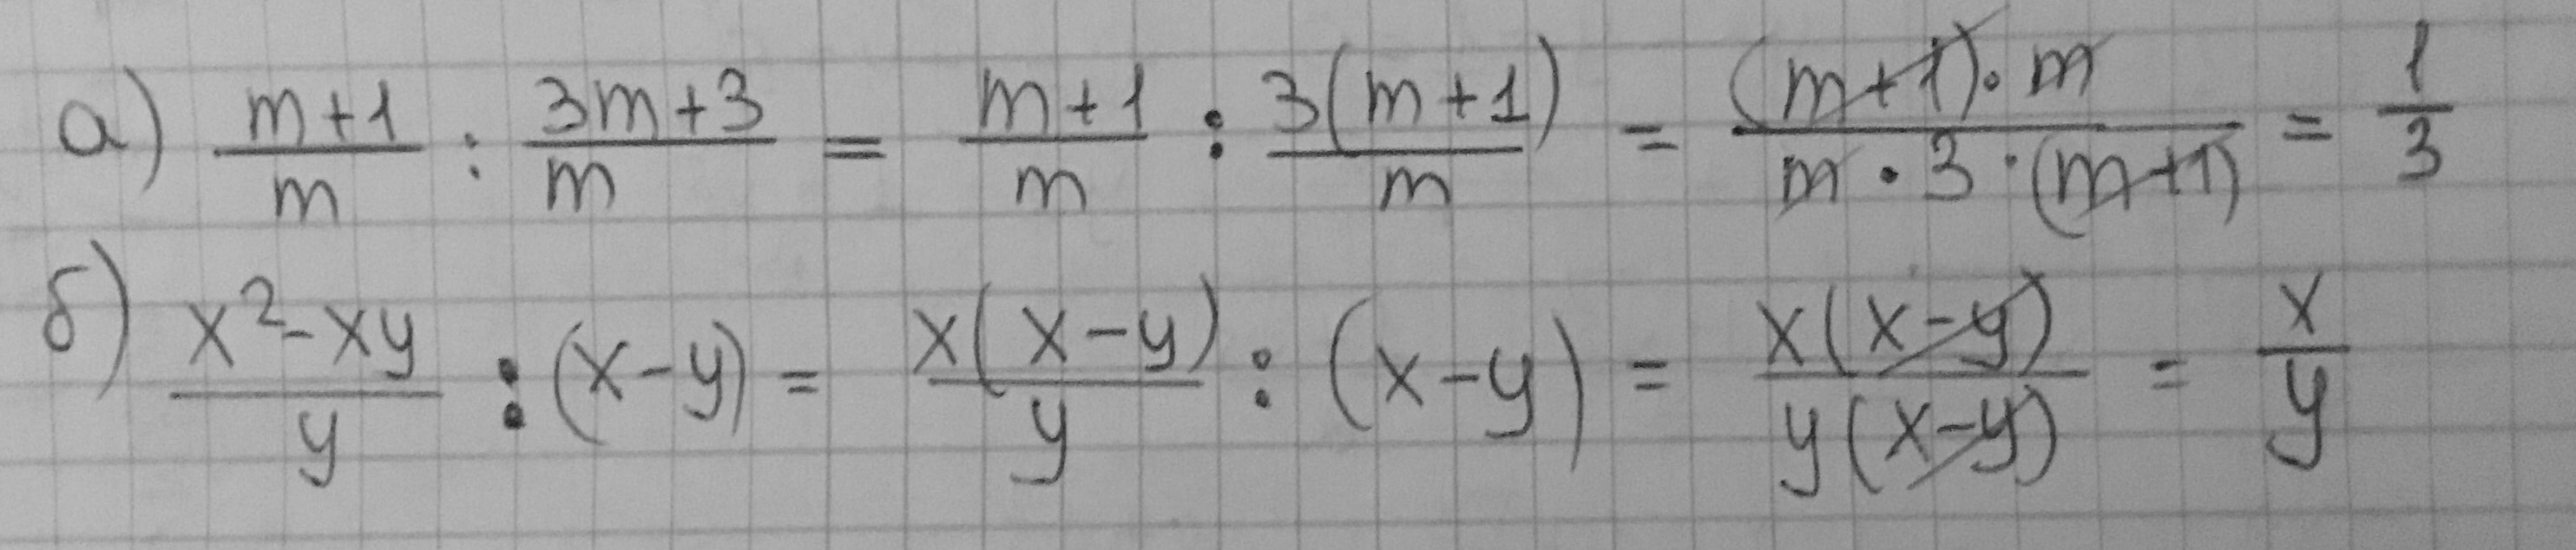 а) (m+1)/m : (3m+3)/m = (m+1)/m : 3(m+1)/m = ((m+1)·m)/(m·3·(m+1)) = 1/3
б) (x²-xy)/y : (x-y) = x(x-y)/y : (x-y) = x(x-y)/y(x-y) = x/y